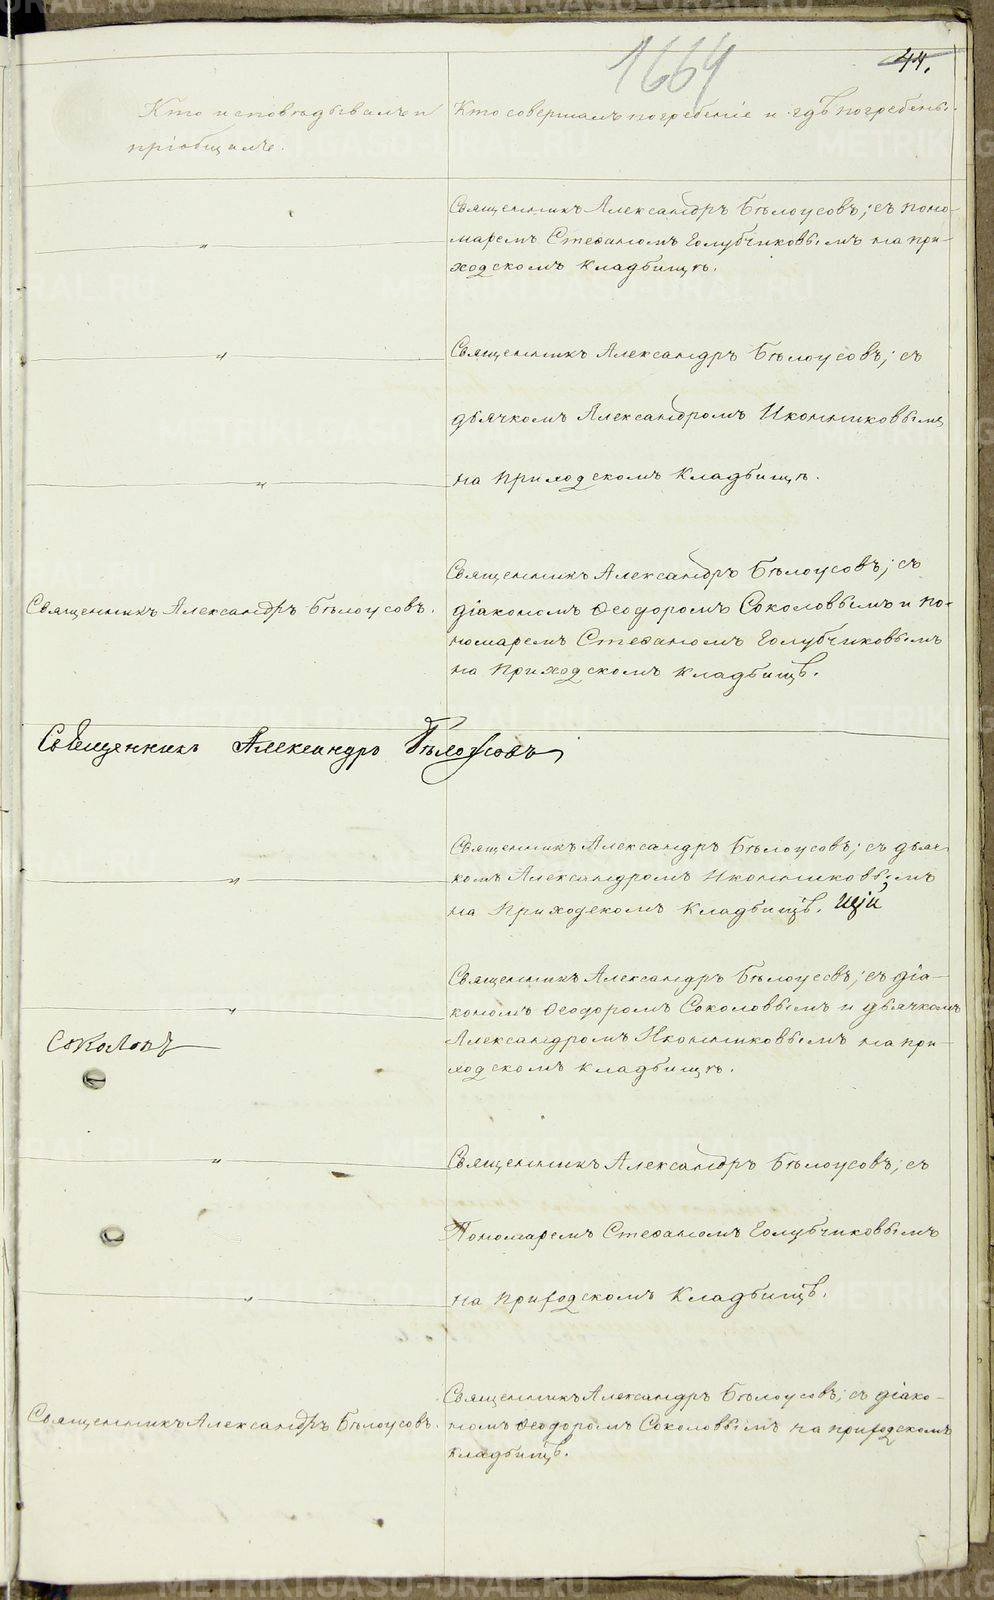 1664
44.
Кто исповѣдывалъ и
пріобщалъ.
Кто совершалъ погребеніе и гдѣ погребены.
Священникъ Александръ Бѣлоусовъ; съ поно-
"
маремъ Стефаномъ Голубчиковымъ на при-
ходскомъ кладбищѣ.
"
Священникъ Александръ Бѣлоусовъ; съ
дьячкомъ Александромъ Иконниковымъ
"
на приходскомъ кладбищѣ.
Священникъ Александръ Бѣлоусовъ; съ
Священникъ Александръ Бѣлоусовъ.
діакономъ Ѳеодоромъ Соколовымъ и по-
номаремъ Стефаномъ Голубчиковымъ
на приходскомъ кладбищѣ.
Священникъ Александръ Бѣлоусовъ
Священникъ Александръ Бѣлоусовъ; съ дьяч-
"
комъ Александромъ Иконниковымъ
на приходскомъ кладбищѣ.
Священникъ Александръ Бѣлоусовъ; съ діа-
"
кономъ Ѳеодоромъ Соколовымъ и дьячкомъ
Соколовъ
Александромъ Иконниковымъ на при-
ходскомъ кладбищѣ.
"
Священникъ Александръ Бѣлоусовъ; съ
Пономаремъ Стефаномъ Голубчиковымъ
"
на приходскомъ кладбищѣ.
Священникъ Александръ Бѣлоусовъ; съ діако-
Священникъ Александръ Бѣлоусовъ.
номъ Ѳеодоромъ Соколовымъ на приходскомъ
кладбищѣ.
METRIKI.GASO-URAL.RU